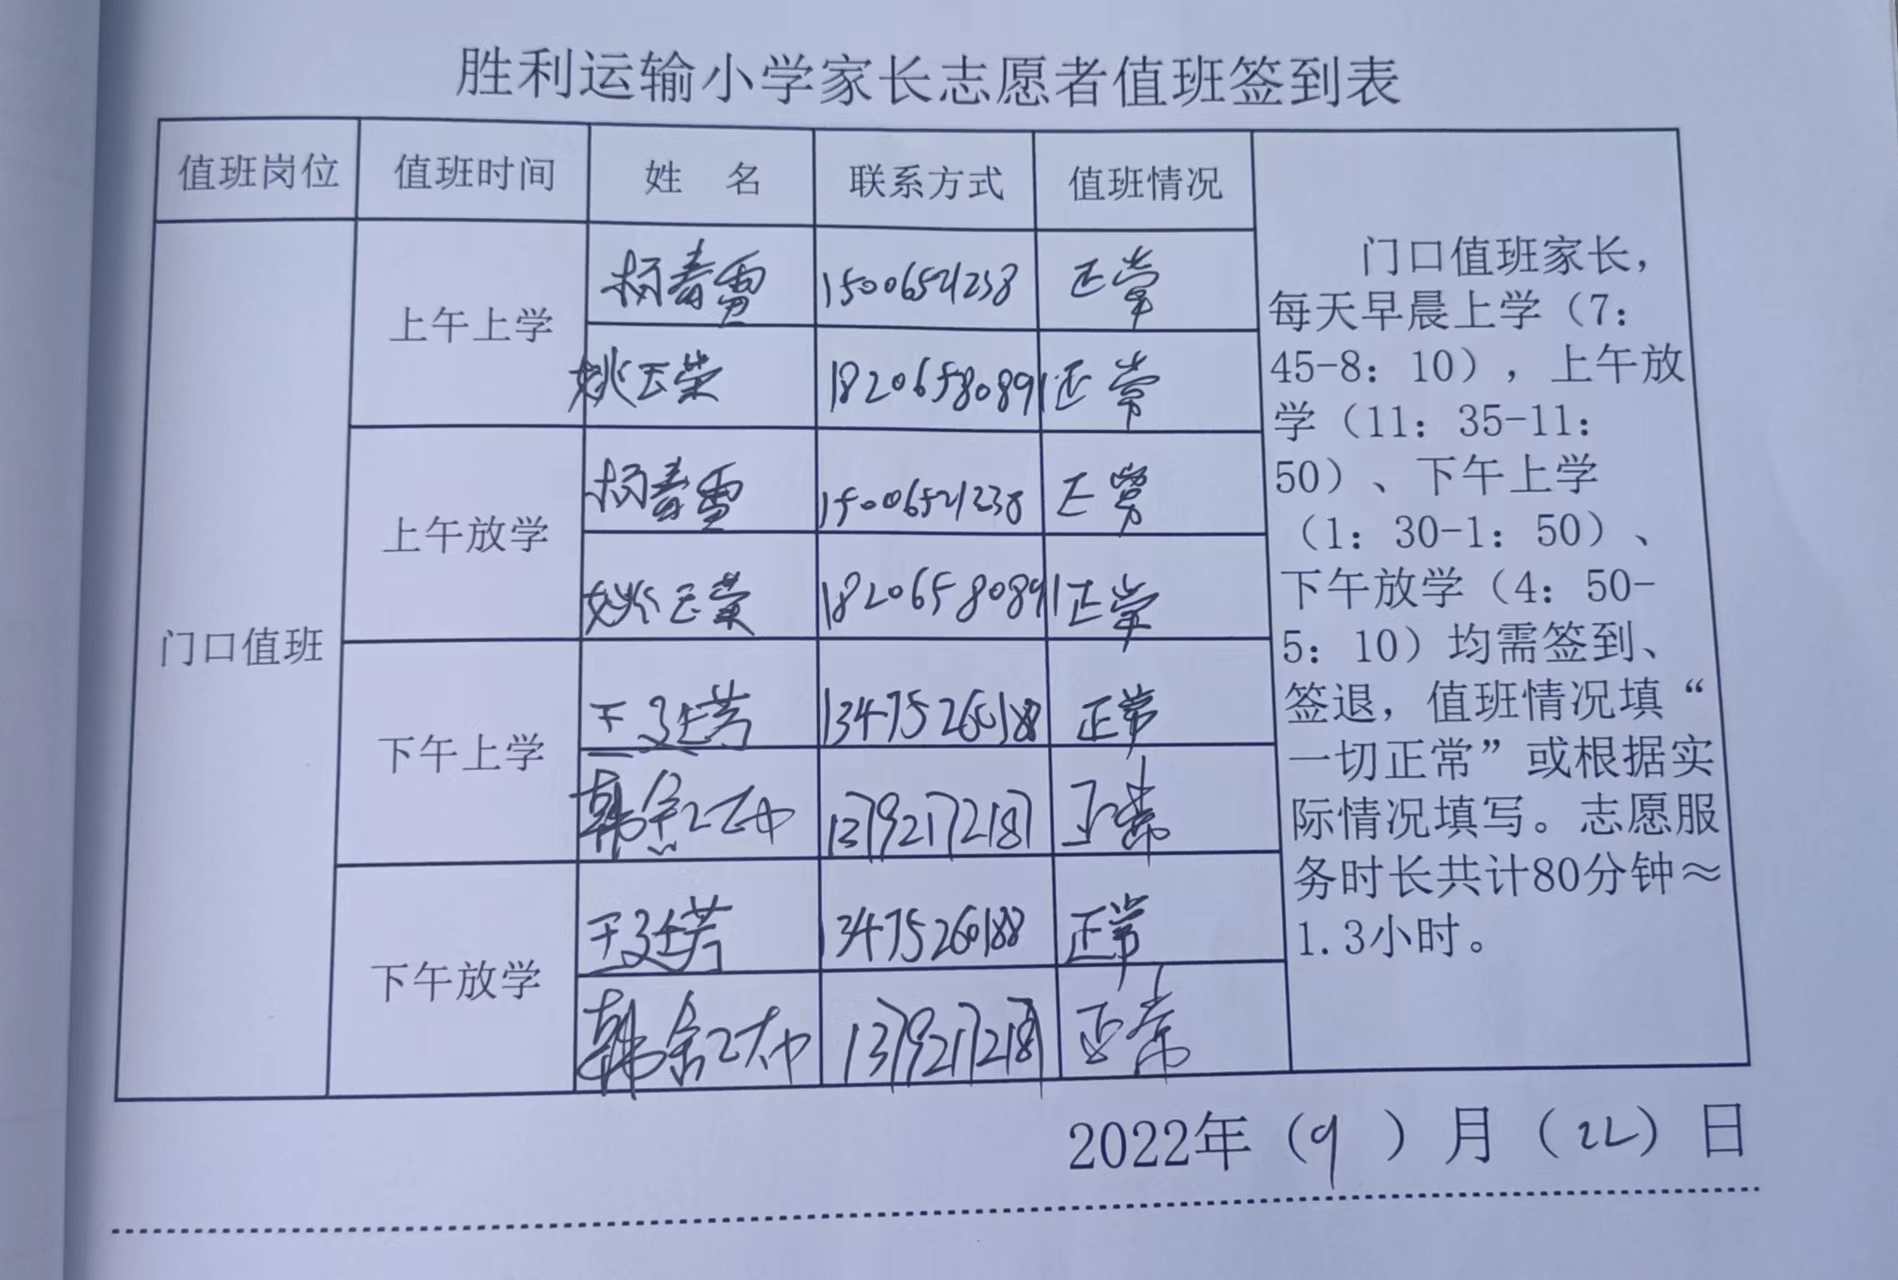 胜利运输小学家长志愿者值班签到表
值班岗位 值班时间 姓 名 联系方式 值班情况
门口值班
上午上学
杨春雪 15006521238 正常
姚玉荣 18206580891 正常
上午放学
杨春雪 15006521238 正常
姚玉荣 18206580891 正常
下午上学
王延芳 13475260188 正常
韩 13792172187 正常
下午放学
王延芳 13475260188 正常
韩 13792172187 正常
门口值班家长，
每天早晨上学（7：
45-8：10），上午放
学（11：35-11：
50）、下午上学
（1：30-1：50）、
下午放学（4：50-
5：10）均需签到、
签退，值班情况填“
一切正常”或根据实
际情况填写。志愿服
务时长共计80分钟≈
1.3小时。
2022年（9）月（22）日